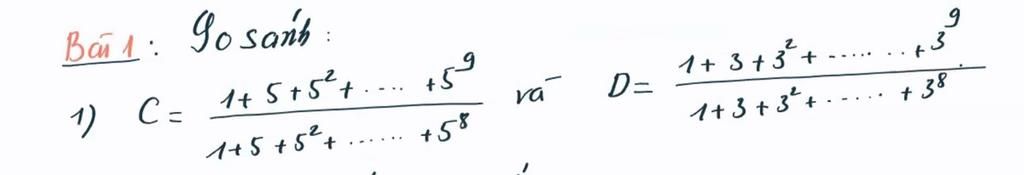 Bài 1: So sánh:
1) C = (1 + 5 + 5² + .... + 5⁹) / (1 + 5 + 5² + ...... + 5⁸) và D = (1 + 3 + 3² + ....... + 3⁹) / (1 + 3 + 3² + ...... + 3⁸)